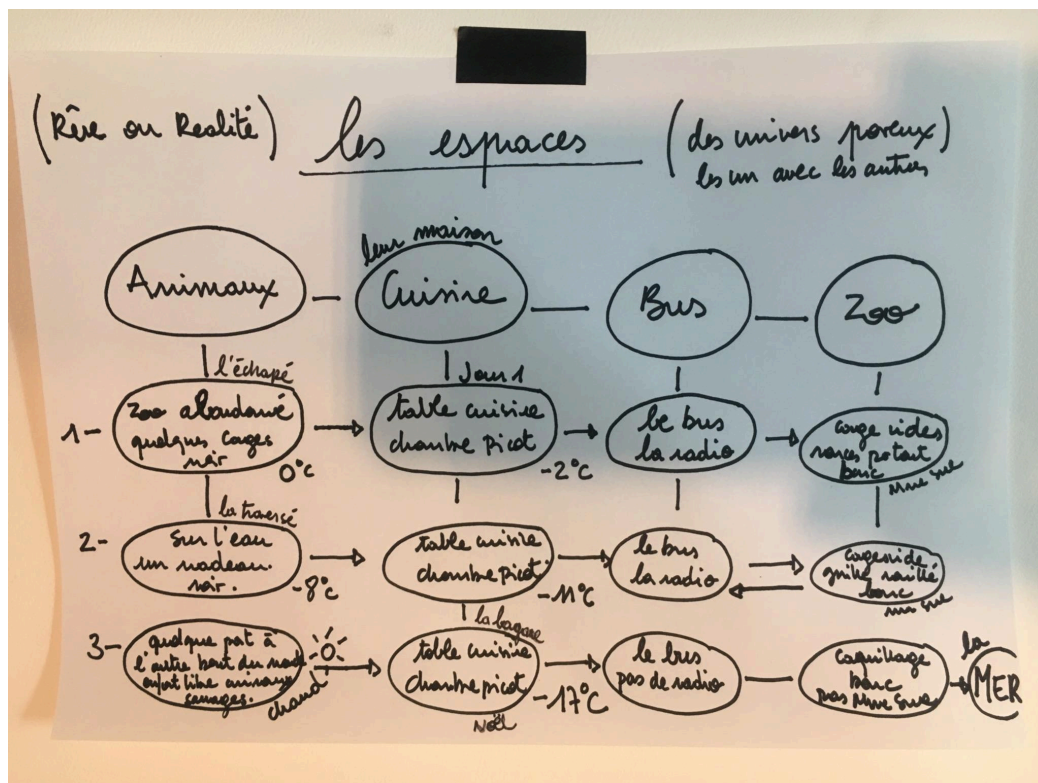 (Rêve ou Realité)
les espaces
(des univers poreux)
les un avec les autres
Animaux
leur maison
Cuisine
Bus
Zoo
l'échapé
Jour 1
1-
Zoo abandonné
quelques cages
noir
0°c
table cuisine
chambre Picot
-2°c
le bus
la radio
cage vides
banc
Mme Sue
la traversé
2-
Sur l'eau
un radeau.
noir.
-8°c
table cuisine
chambre picot
-11°c
le bus
la radio
cage vide
grille rouillé
banc
la bagare
3-
quelque part à
l'autre bout du
sauvages.
chaud
table cuisine
chambre picot
-17°C
Noël
le bus
pas de radio
coquillage
banc
pas Mme Sue
la
MER